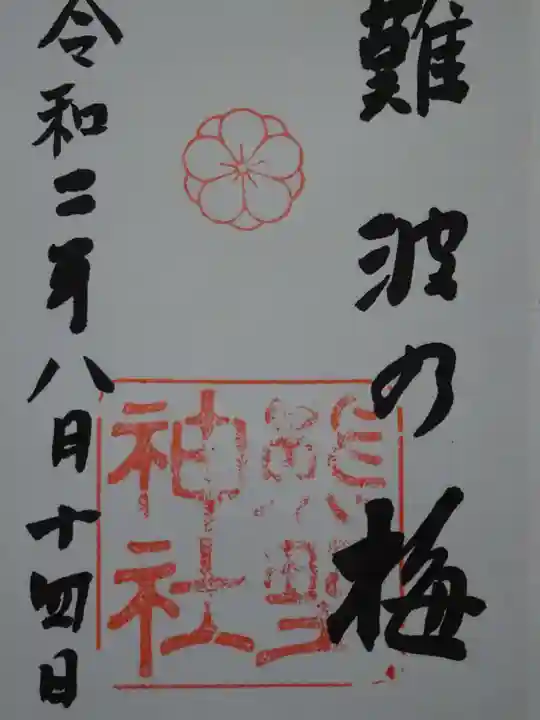 難波の梅
熊野
神社
令和二年八月十四日